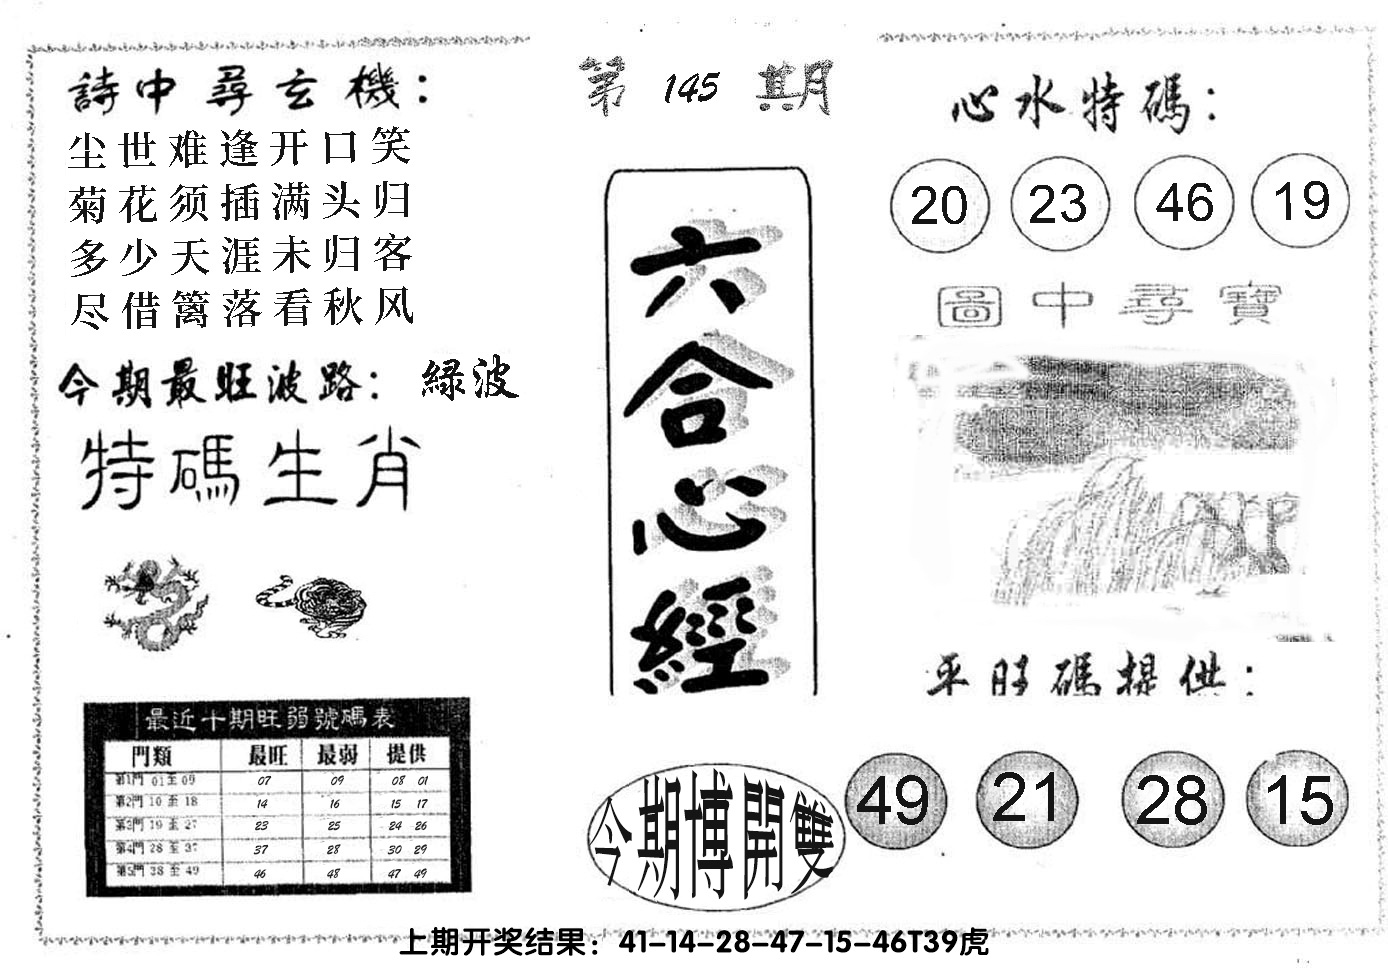 第 145 期
詩中尋玄機：
尘世难逢开口笑
菊花须插满头归
多少天涯未归客
尽借篱落看秋风
今期最旺波路： 緑波
特碼生肖
最近十期旺弱號碼表
門類 最旺 最弱 提供
第1門 01至09 07 09 08 01
第2門 10至18 14 16 15 17
第3門 19至27 23 25 24 26
第4門 28至37 37 28 30 29
第5門 38至49 46 48 47 49
六合心經
今期博開雙
心水特碼：
20 23 46 19
圖中尋寶
平旺碼提供：
49 21 28 15
上期开奖结果：41-14-28-47-15-46T39虎